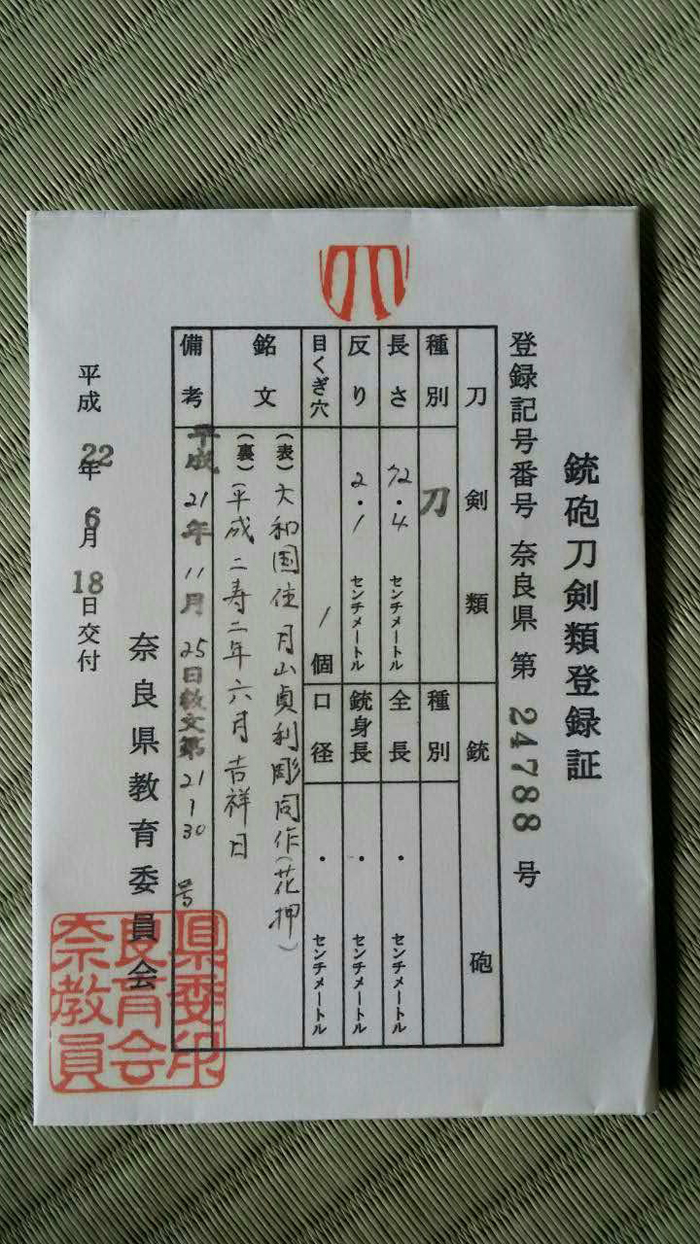 銃砲刀剣類登録証
登録記号番号 奈良県 第 24788 号
刀剣類 銃砲
種別 刀 種別
長さ 72.4 センチメートル 全長 ・ センチメートル
反り 2.1 センチメートル 銃身長 ・ センチメートル
目くぎ穴 1 個 口径 ・ センチメートル
銘文 (表) 大和国住 月山貞利彫同作(花押)
(裏) 平成二寿二年六月吉祥日
備考 平成21年11月25日教文第21-30号
平成22年6月18日交付
奈良県教育委員会
県委印
良育会
奈教員